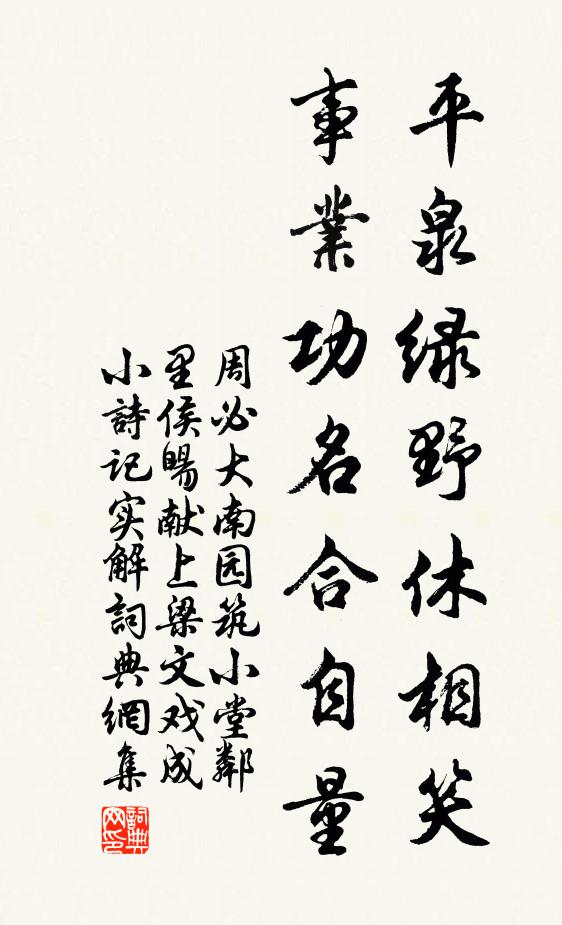 平泉绿野休相笑
事業功名合自量
周必大南园筑小堂鄰
里侯暘献上梁文戏成
小詩记实解詞典網集
詞典
网印